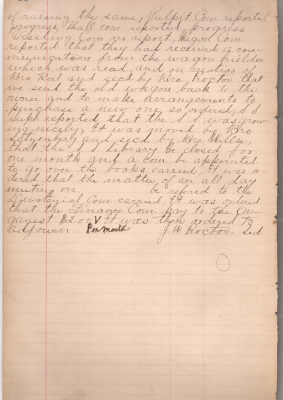 of raising the same, Pulpyt Com reported
progress, Hall com reported progress
Visiting Com no report, Wagon Com
reported that they had received a com-
munication from the wagon builder
which was read, and on motion of
Bro and secd by Bro, Proctor that
we send the old wagon back to the
none and to make arrangements to
purchase a new one so ordered,
Supt reported that the S. S. was grow-
ing nicely, it was moved by Bro
and secd by Bro Mills,
that the S. S. Library be closed for
one month and a com be appointed
to go over the books carried, it was or-
dered that the matter of an all day
meeting on be referred to the
Com carried, it was ordered
that the Finance Com pay to the Or-
ganest $2.00 V it was then ordered to
Adjourn. Per month J W Proctor. Sec